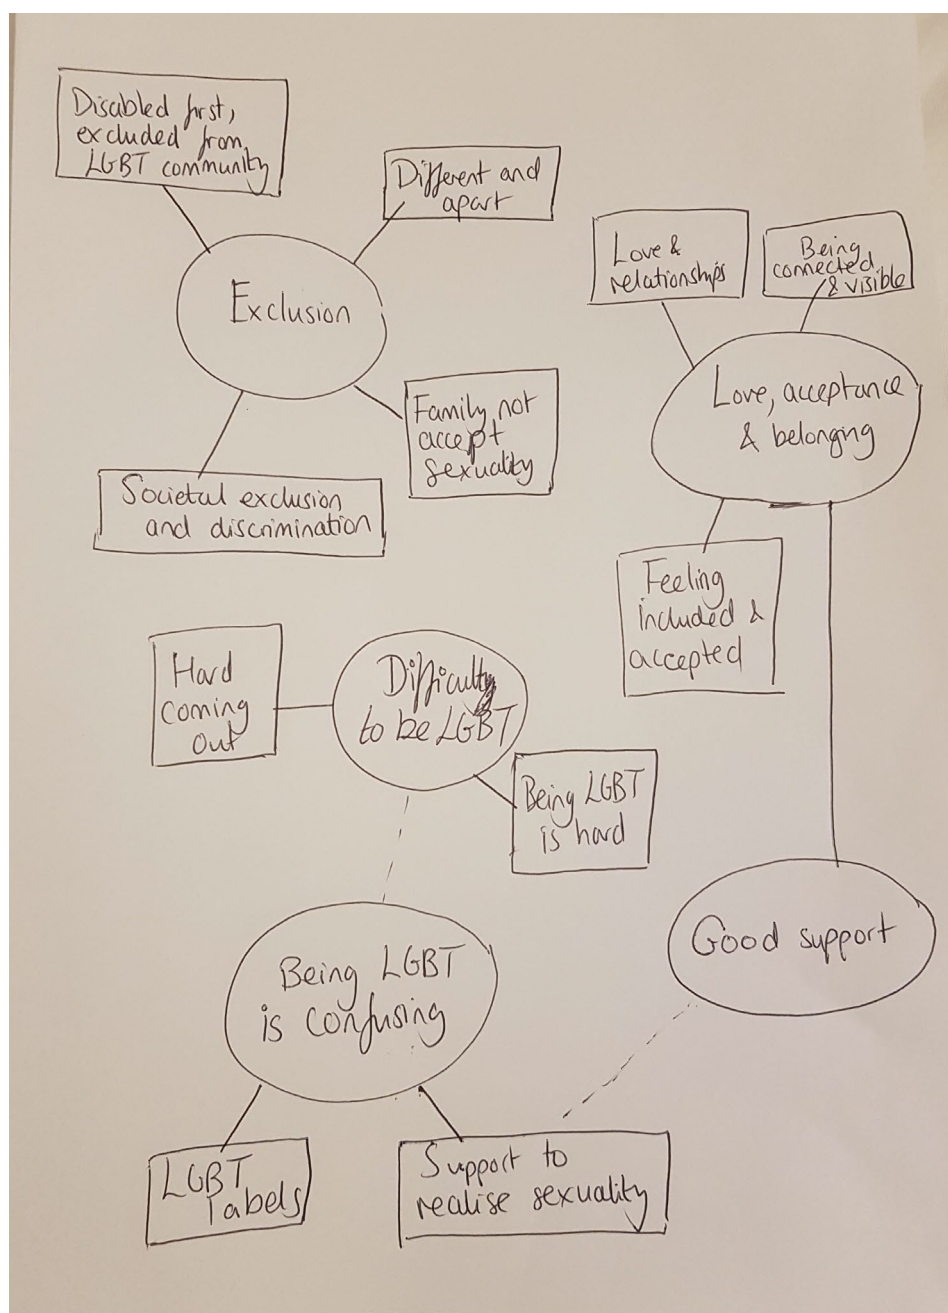 Disabled first,
excluded from
LGBT community
Different and
apart
Exclusion
Family not
accept
sexuality
Societal exclusion
and discrimination
Love &
relationships
Being
connected
& visible
Love, acceptance
& belonging
Feeling
included &
accepted
Hard
coming
out
Difficulty
to be LGBT
Being LGBT
is hard
Being LGBT
is confusing
Good support
LGBT
labels
Support to
realise sexuality